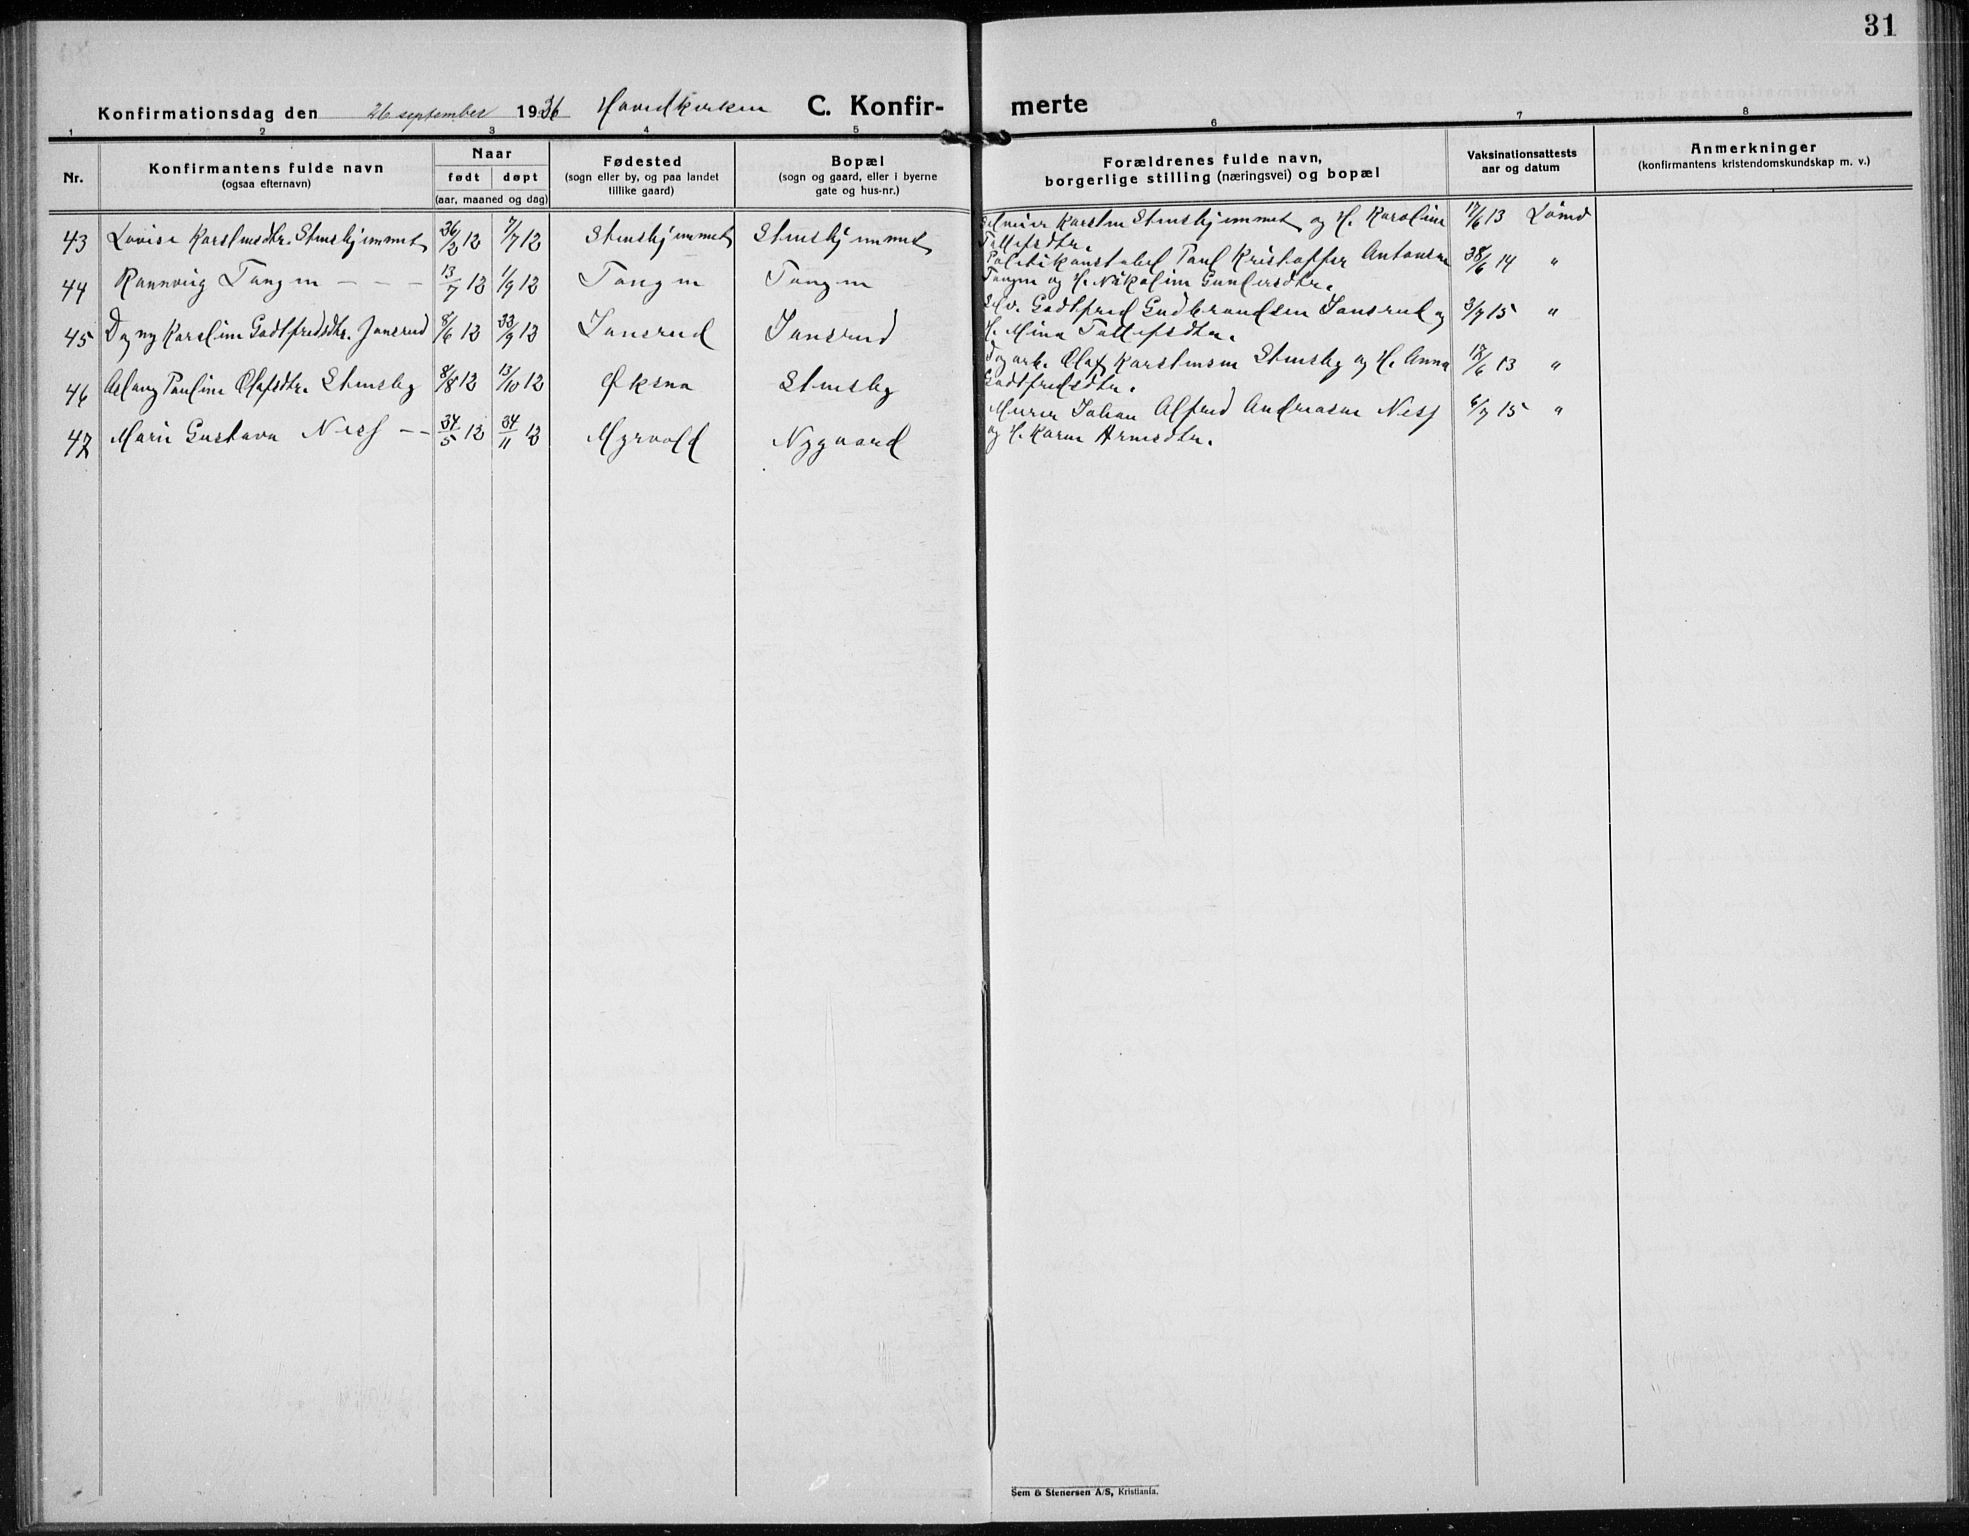 31
Konfirmationsdag den 26 september 1926 Hovedkirken C. Konfir- merte
1 2 3 4 5 6 7 8
Nr. Konfirmantens fulde navn (ogsaa efternavn)
Naar født døpt (aar, maaned og dag)
Fødested (sogn eller by, og paa landet tillike gaard)
Bopæl (sogn og gaard, eller i byerne gate og hus-nr.)
Forældrenes fulde navn, borgerlige stilling (næringsvei) og bopæl
Vaksinationsattests aar og datum
Anmerkninger (konfirmantens kristendomskundskap m. v.)
43 Lovise Karstensdtr. Stenshjemmet 26/2 12 7/7 12 Stenshjemmet Stenshjemmet Karsten Stenshjemmet og H. Karoline 17/6 13
Tollefsdtr.
44 Rannveig Tangen - - - 13/7 12 1/9 12 Tangen Tangen Politikonstabel Paul Kristoffer Antonsen 28/6 14 "
Tangen og H. Nikoline Gundersdtr.
45 Dagny Karoline Godtfredsdtr. Jansrud 8/6 12 22/9 12 Jansrud Jansrud Selv. Godtfred Gudbrandsen Jansrud og 3/7 15 "
H. Mina Tollefsdtr.
46 Aslaug Pauline Olafsdtr. Stensby 8/8 12 13/10 12 Øksna Stensby Dagarb. Olaf Karstensen Stensby og H. Anna 17/6 13 "
Godtfredsdtr.
47 Marie Gustava Ness -- 24/5 12 24/11 12 Myrvold Nygaard Murer Johan Alfred Andreasen Ness 6/7 15 "
og H. Karen Arnesdtr.
Sem & Stenersen A/S, Kristiania.